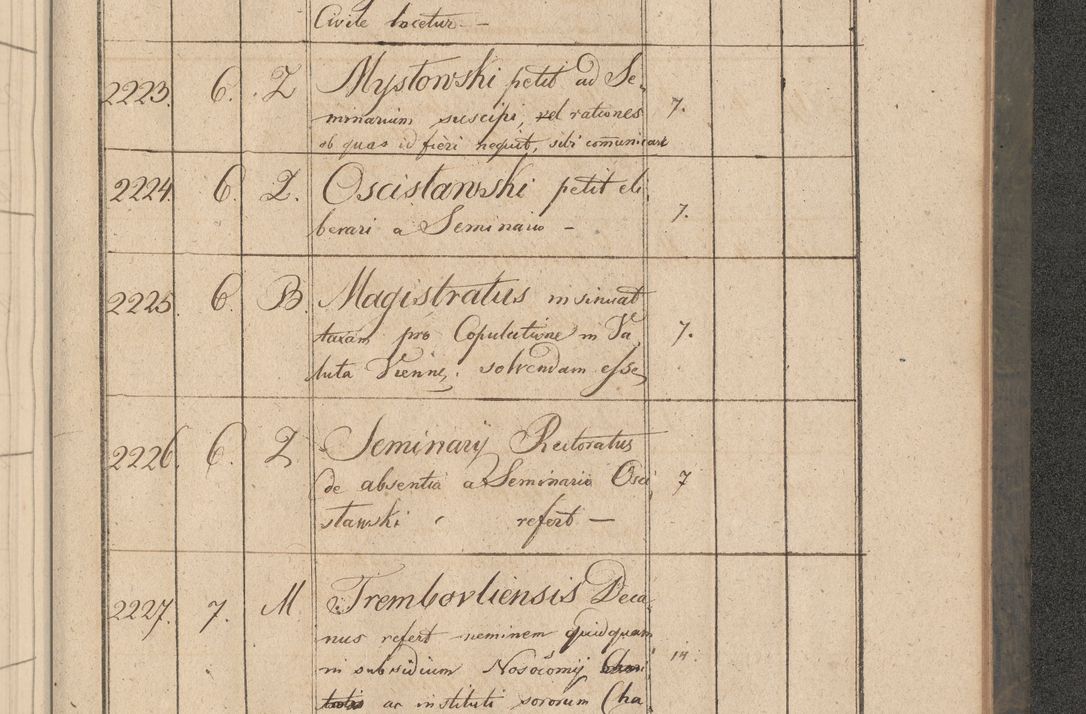 Civile locetur —
2223. 6. Z Mystowski petit ad Se-
minarium suscipi, vel rationes 7.
ob quas id fieri nequit, sibi communicare
2224. 6. Z. Oscistawski petit eli
berari a Seminario – 7.
2225. 6. B. Magistratus insinuat
taxam pro Copulatione in Va 7.
luta Vienne. solvendam esse
2226. 6. Z Seminarij Rectoratus
de absentia a Seminario Osci 7
stawski refert —
2227. 7. M Trembovliensis Deca-
nus refert neminem quidquam
in subsidium Nosocomij 14.
ac instituti sororum Cha-